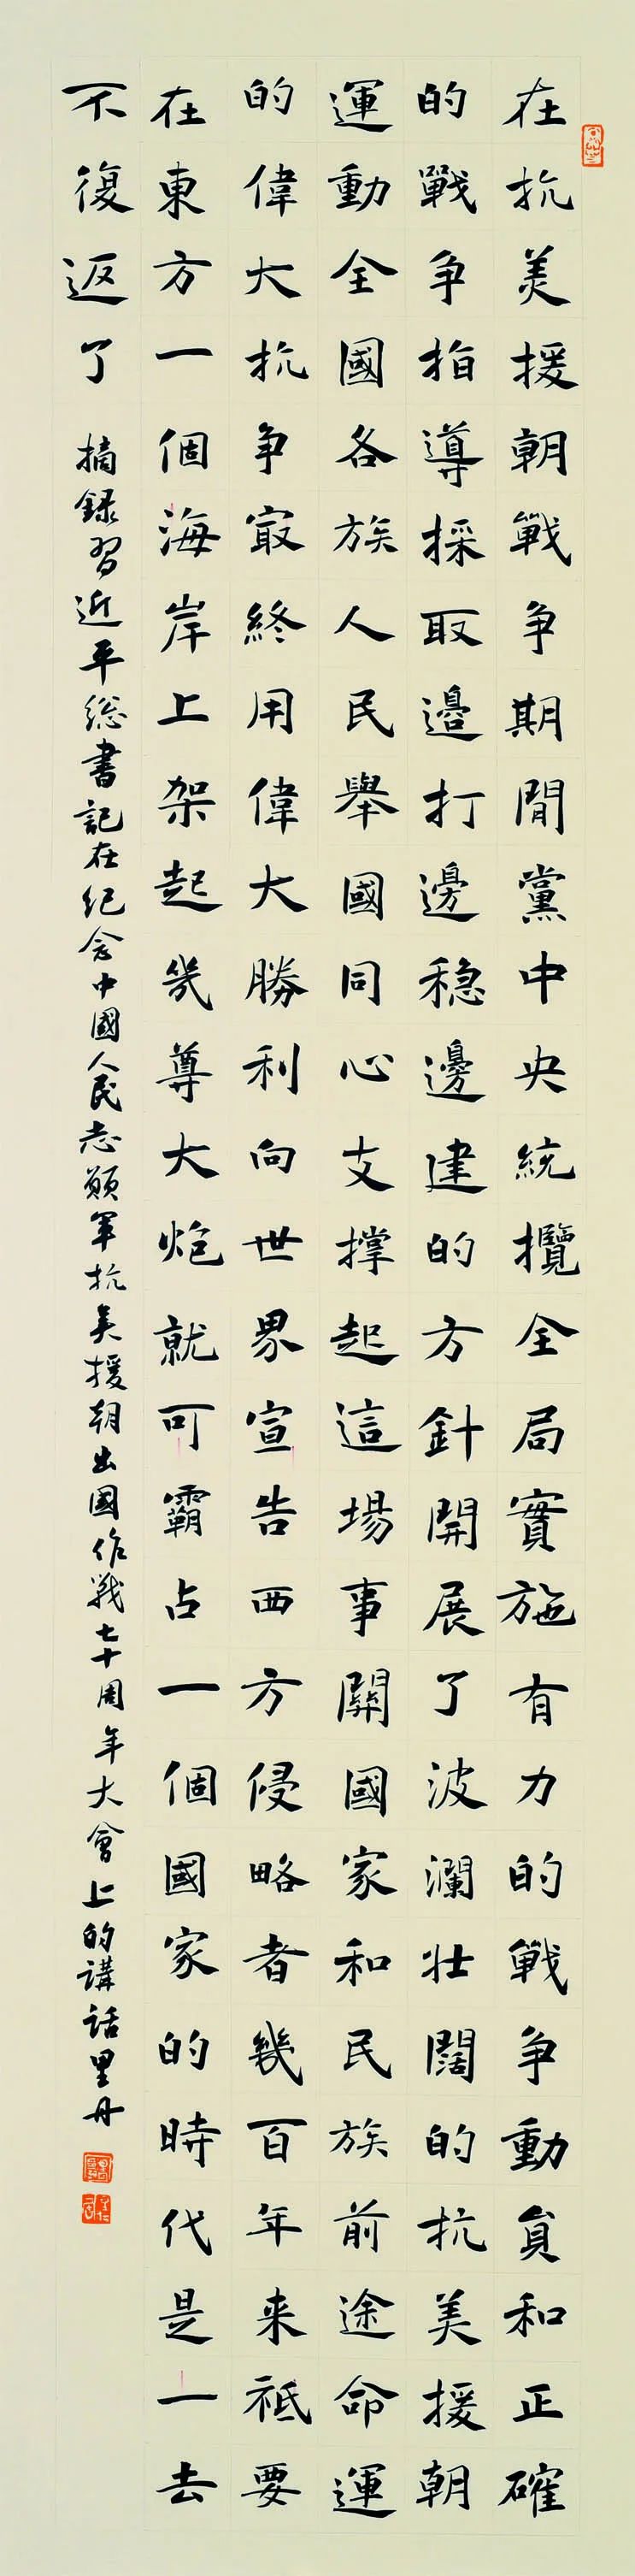 在抗美援朝戰争期間黨中央統攬全局實施有力的戰争動員和正確
的戰争指導採取邊打邊稳邊建的方針開展了波瀾壯闊的抗美援朝
運動全國各族人民舉國同心支撑起這場事關國家和民族前途命運
的偉大抗争最終用偉大勝利向世界宣告西方侵略者幾百年来祗要
在東方一個海岸上架起幾尊大炮就可霸占一個國家的時代是一去
不復返了 摘録習近平総書記在纪念中國人民志願軍抗美援朝出國作戰七十周年大會上的講話里丹